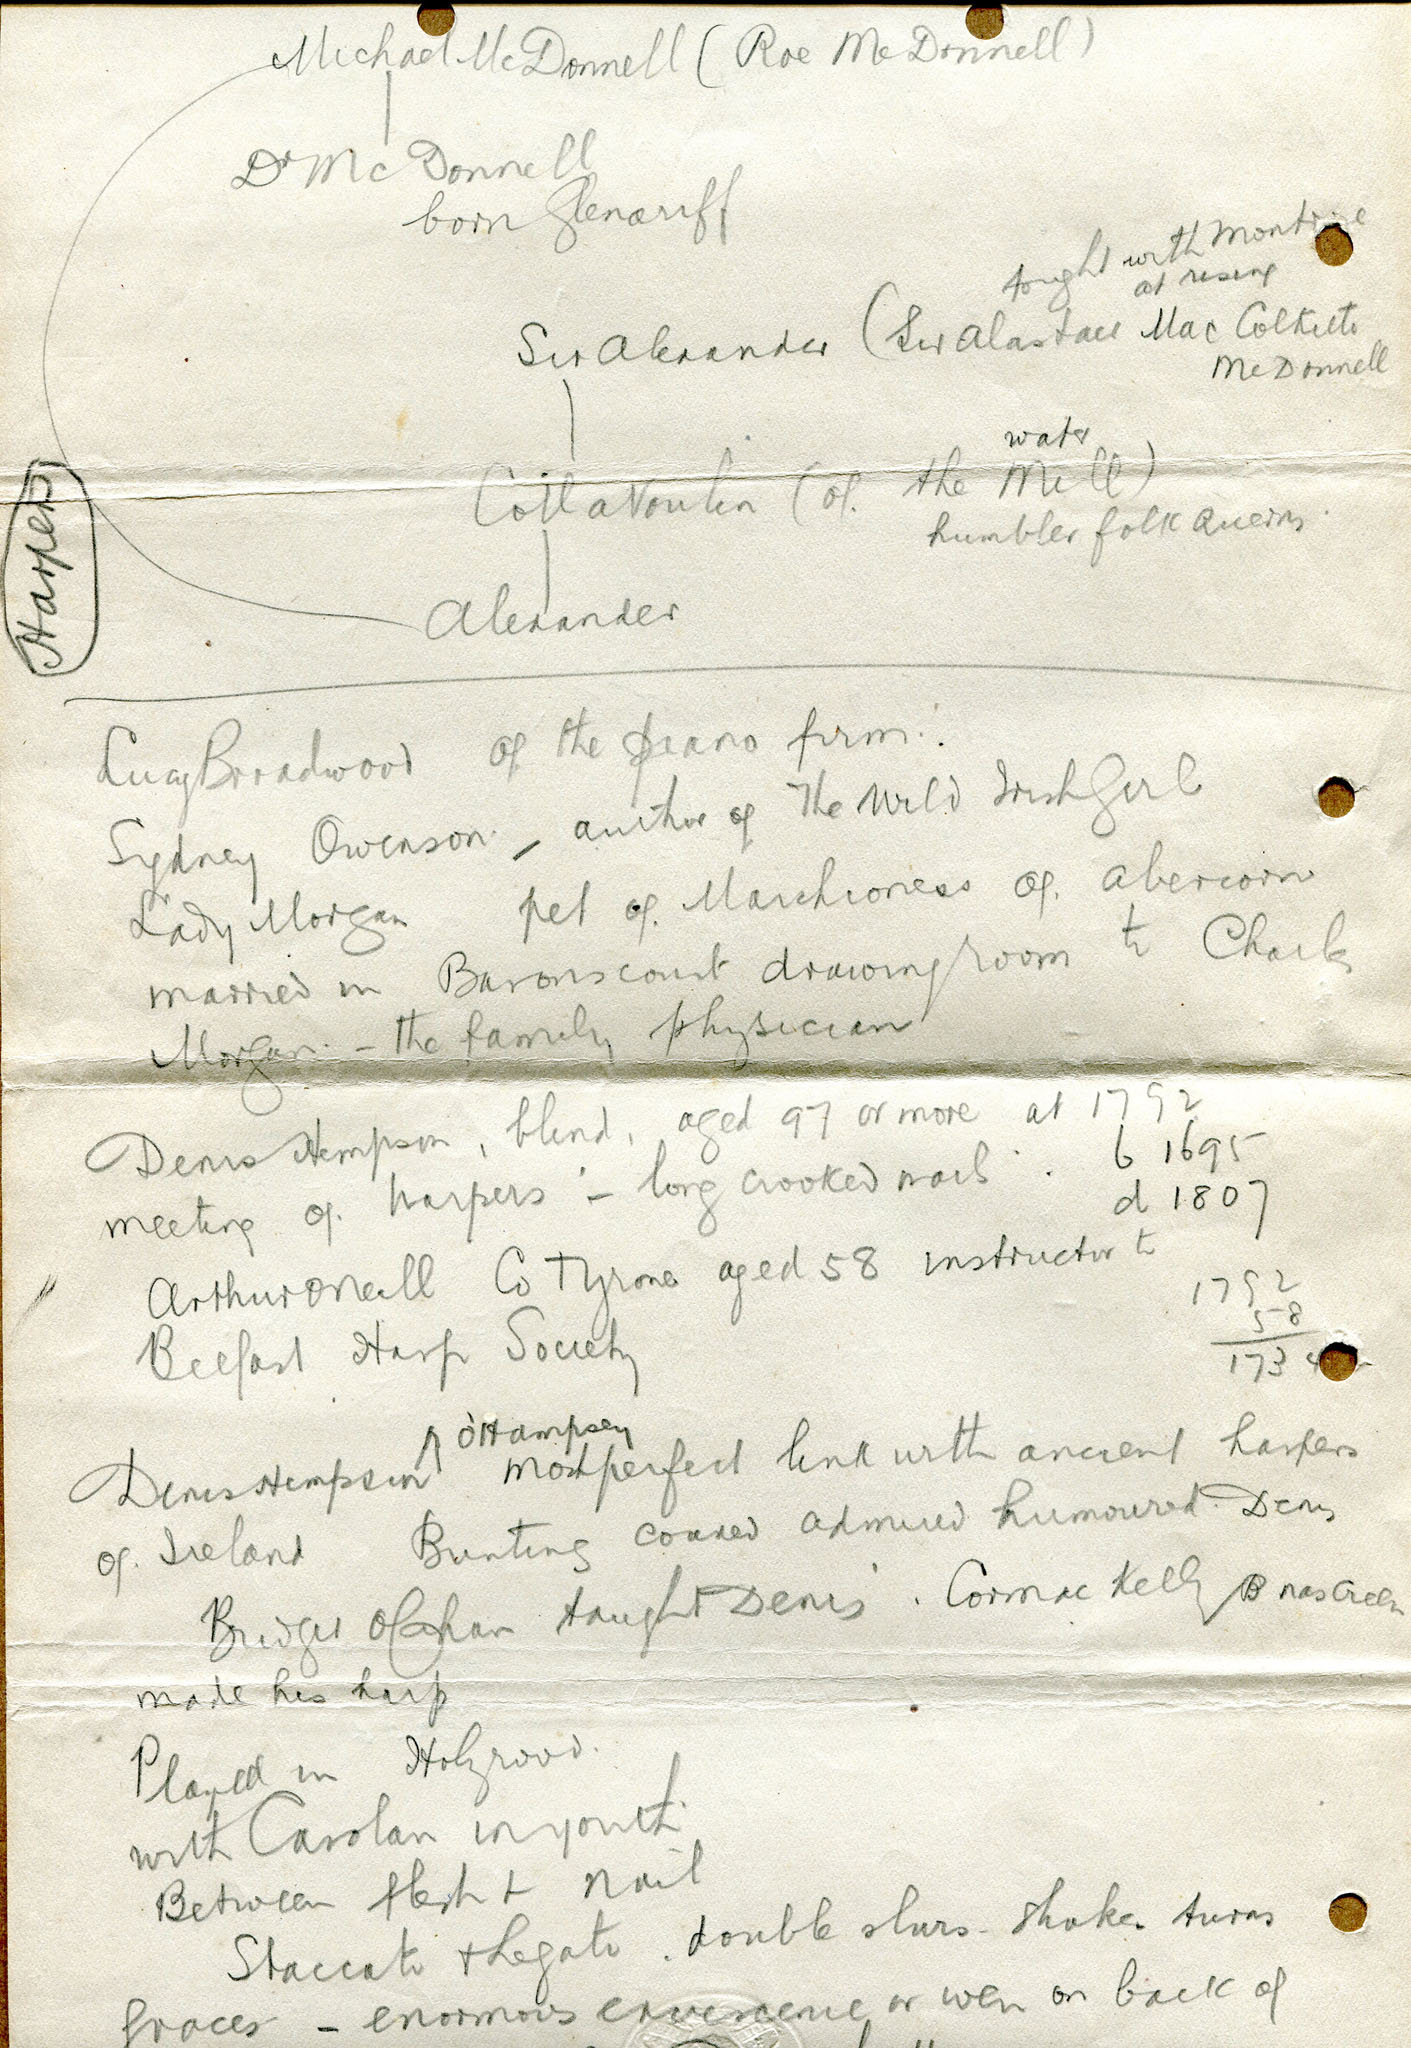 Michael McDonnell (Roe McDonnell)
Dr McDonnell
born Glenariff
fought with Montrose
at rising
Sir Alexander (Sir Alastair Mac Colkitto
McDonnell
water
Coll a Voulin (of the Mill)
humbler folk Querns.
Harpers
Alexander
Lucy Broadwood of the piano firm.
Sydney Owenson - author of The Wild Irish Girl
Lady Morgan pet of Marchioness of Abercorn
married in Baronscourt drawing room to Charles
Morgan. - the family physician
Denis Hempson, blind, aged 97 or more at 1792
meeting of harpers - long crooked nails.
b 1695
d 1807
Arthur O Neill Co Tyrone aged 58 instructor to
Belfast Harp Society
1792
58
1734
O'Hampsey
Denis Hempson most perfect link with ancient harpers
of Ireland Bunting coaxed admired humoured Denis
Bridget O'Cahan taught Denis. Cormac Kelly
made his harp
Played in Holyrood.
with Carolan in youth
Between flesh & nail
Staccato & Legato. double slurs - shakes turns
graces - enormous excrescence or wen on back of